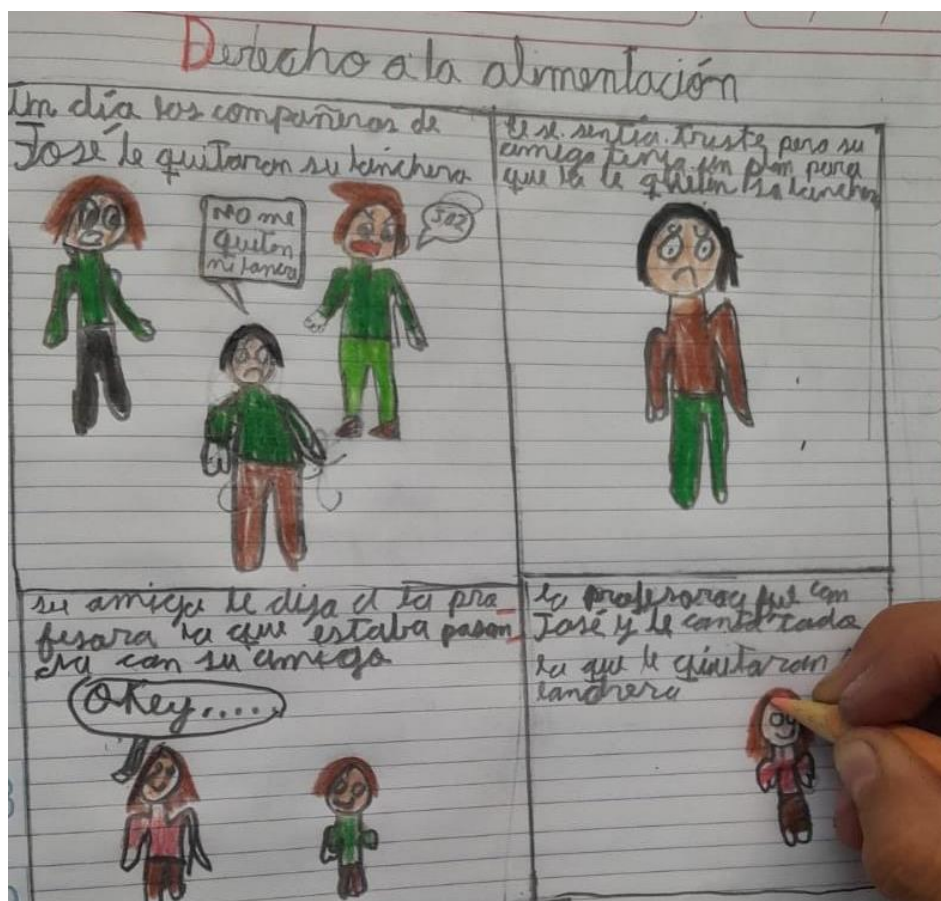 Derecho a la alimentación
Un día los compañeros de
José le quitaron su lonchera
No me
quiten
mi
el se sentía triste pero su
amiga tenía un plan para
que la le quiten su
su amiga le dijo a la pro
fesora lo que estaba pasan
do con su amigo
Okey.....
la profesora fue con
José y le contó todo
lo que le quitaron
lonchera